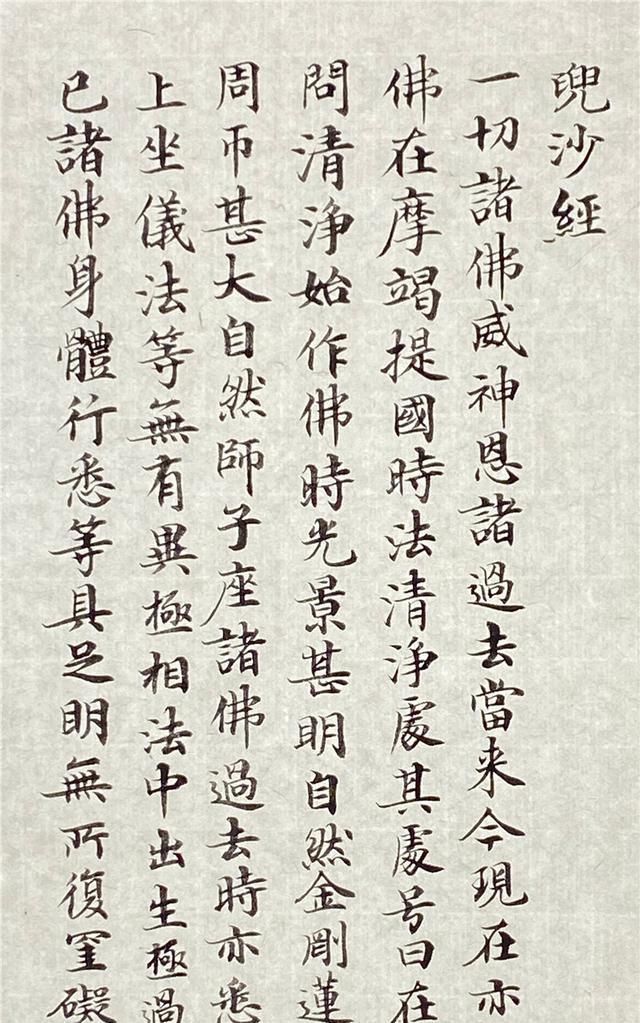 兜沙經
一切諸佛威神恩諸過去當来今現在亦
佛在摩竭提國時法清淨處其處号曰在
問清淨始作佛時光景甚明自然金剛蓮
周帀甚大自然師子座諸佛過去時亦悉
上坐儀法等無有異極相法中出生極過
已諸佛身體行悉等具足明無所復罣礙